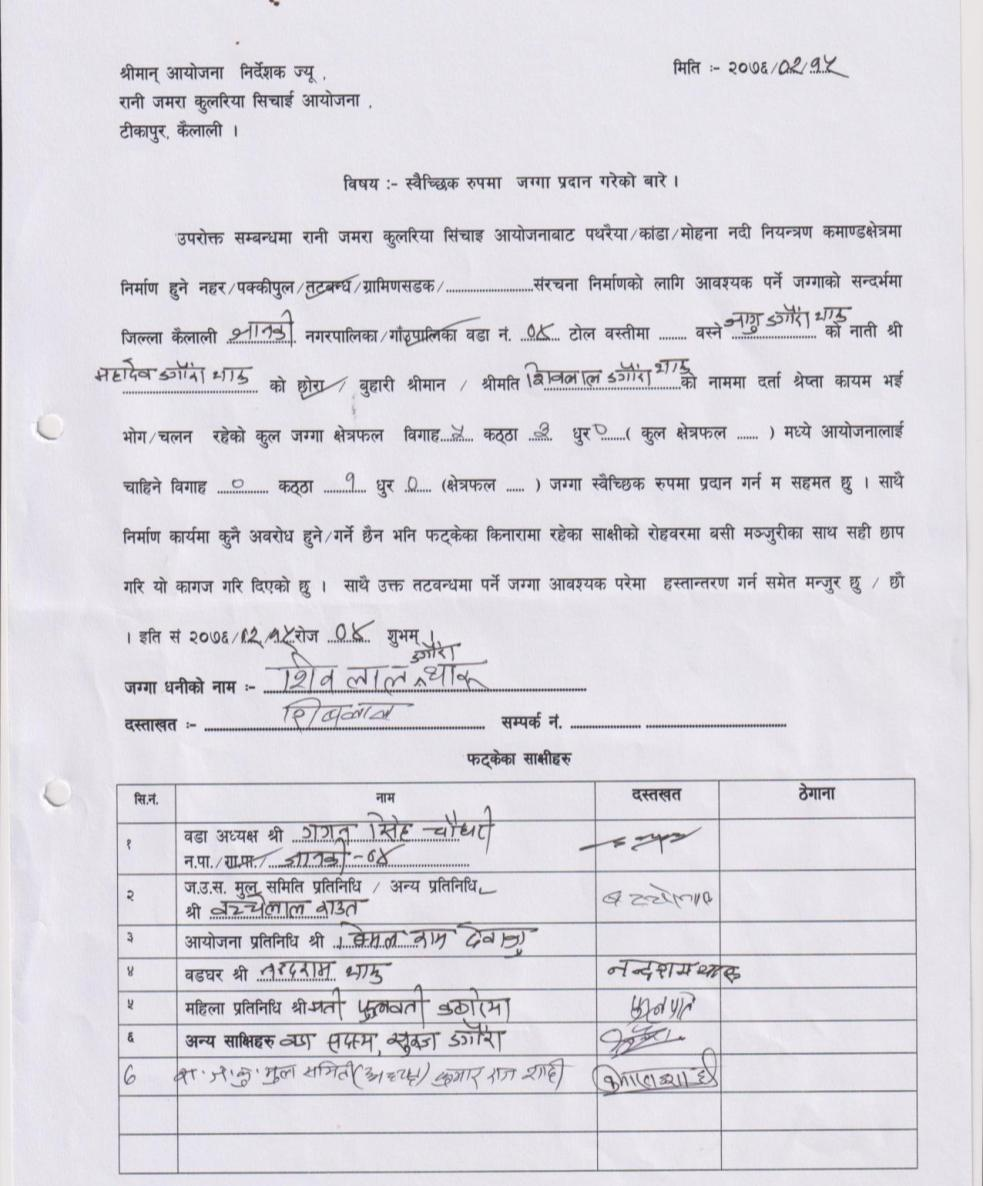 श्रीमान् आयोजना निर्देशक ज्यू ,
मिति :- २०७६/०२/१५
रानी जमरा कुलरिया सिचाई आयोजना ,
टीकापुर, कैलाली ।
विषय :- स्वैच्छिक रुपमा जग्गा प्रदान गरेको बारे ।
उपरोक्त सम्बन्धमा रानी जमरा कुलरिया सिंचाइ आयोजनाबाट पथरैया/कांडा/मोहना नदी नियन्त्रण कमाण्डक्षेत्रमा
निर्माण हुने नहर/पक्कीपुल/तटबन्ध/ग्रामिणसडक/........................संरचना निर्माणको लागि आवश्यक पर्ने जग्गाको सन्दर्भमा
जिल्ला कैलाली जानकी नगरपालिका/गाँउपालिका वडा नं. ०४ टोल वस्तीमा ........ वस्ने जागु डगौरा थारु को नाती श्री
महादेव डगौरा थारु को छोरा / बुहारी श्रीमान / श्रीमति शिवलाल डगौरा थारु को नाममा दर्ता श्रेष्ता कायम भई
भोग/चलन रहेको कुल जग्गा क्षेत्रफल विगाह कठ्ठा धुर ० ( कुल क्षेत्रफल ...... ) मध्ये आयोजनालाई
चाहिने विगाह ० कठ्ठा १ धुर ० (क्षेत्रफल ..... ) जग्गा स्वैच्छिक रुपमा प्रदान गर्न म सहमत छु । साथै
निर्माण कार्यमा कुनै अवरोध हुने/गर्ने छैन भनि फट्केका किनारामा रहेका साक्षीको रोहवरमा बसी मञ्जुरीका साथ सही छाप
गरि यो कागज गरि दिएको छु । साथै उक्त तटवन्धमा पर्ने जग्गा आवश्यक परेमा हस्तान्तरण गर्न समेत मन्जुर छु / छौ
। इति सं २०७६/०२/१५ रोज ०४ शुभम् ।
जग्गा धनीको नाम :- शिव लाल डगौरा थारू
दस्ताखत :- शिवलाल सम्पर्क नं. .................. ....................................
फट्केका साक्षीहरु
सि.नं. नाम दस्तखत ठेगाना
१ वडा अध्यक्ष श्री गगन सिंह चौधरी
न.पा./गा.पा. जानकी-०४
२ ज.उ.स. मुल समिति प्रतिनिधि / अन्य प्रतिनिधि
श्री बच्चेलाल राउत
३ आयोजना प्रतिनिधि श्री राम
४ वडघर श्री नन्दराम थारु नन्दराम थारू
५ महिला प्रतिनिधि श्रीमती फुलवती
६ अन्य साक्षिहरु वडा सदस्य, डगौरा
७ मुल समिती (अध्यक्ष) कुमार राज शाही